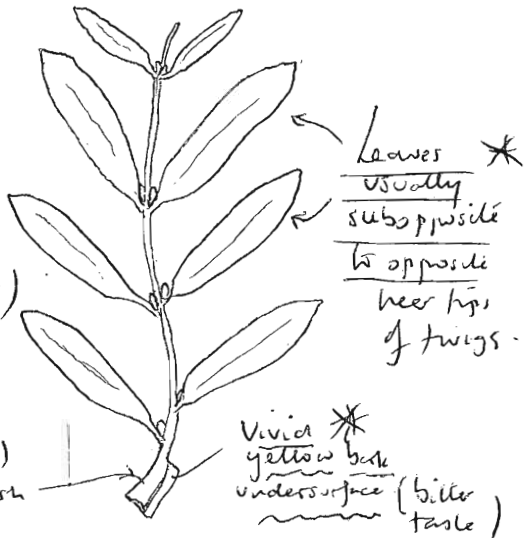 Leaves
usually
subopposite
to opposite
near tips
of twigs.
)
Vivid
yellow bark
)
undersurface (bitter
taste)